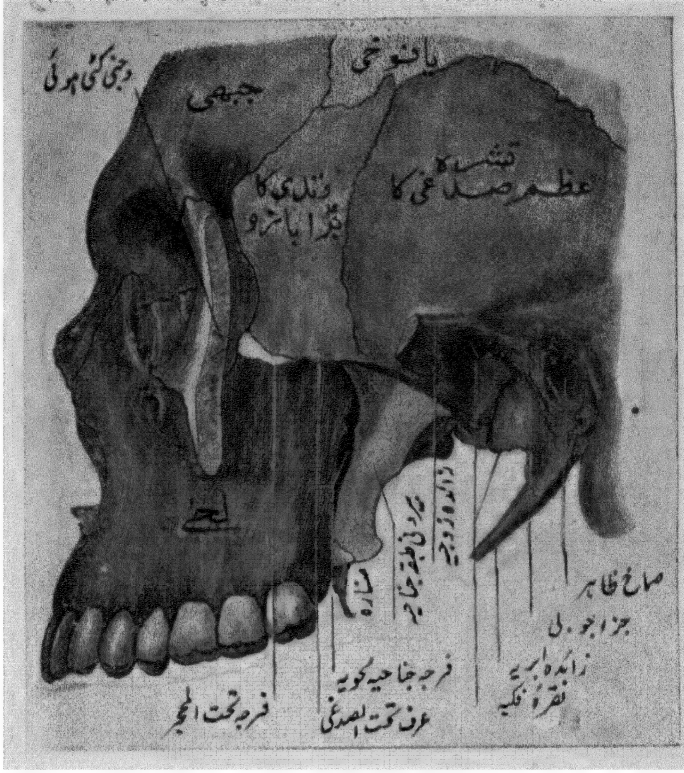 یافوخی
وجنی کٹی ہوئی
جبھی
قشرہ
عظم صدغی کا
وتدی کا
بڑا بازو
لحی
زائدہ زوجیہ
بیرونی طبقہ جناحیہ
منشارہ
صماخ ظاہر
زائدہ ابریہ
نقرۂ فکیہ
فرجہ جناحیہ لحویہ
عرف تحت الصدغی
فرجہ تحت المحجر